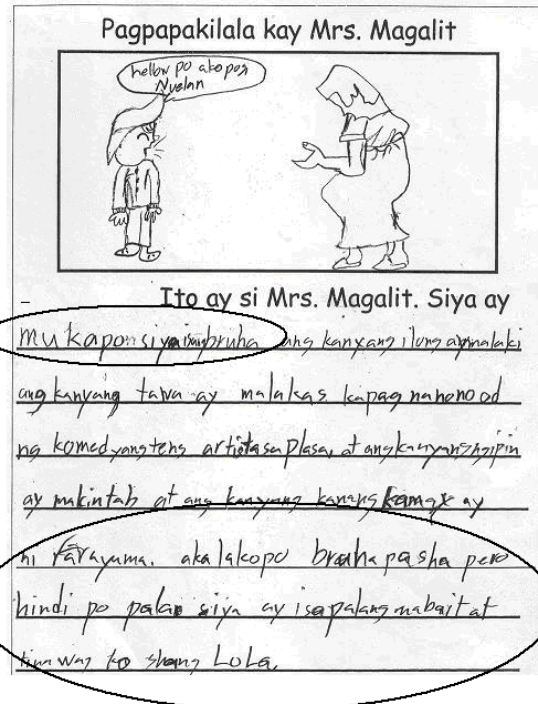 Pagpapakilala kay Mrs. Magalit
hellow po ako posi
Nuelan
Ito ay si Mrs. Magalit. Siya ay
mukapon siya bruha ang kanyang ilong ay malaki
ang kanyang tawa ay malakas kapag nanonood
ng komedyang artista sa plasa, at ang kanyang ngipin
ay makintab at ang kanyang kamay ay
ni rarayuma. akala ko po bruha pa sha pero
hindi po pala siya ay isa palang mabait at
ko shang LoLa.